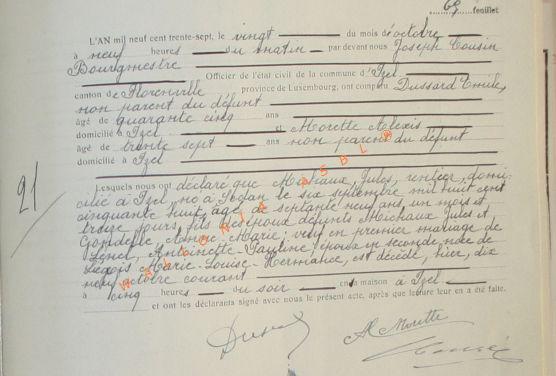 69 feuillet
L'AN mil neuf cent trente-sept, le vingt du mois d'octobre
à neuf heures du matin par devant nous Joseph Cousin
Bourgmestre
Officier de l'état civil de la commune d'Izel
canton de Florenville province de Luxembourg, ont comparu Dussard Emile,
non parent du défunt
âgé de quarante cinq ans
domicilié à Izel et Morette Alexis
âgé de trente sept ans non parent du défunt
domicilié à Izel
21/
Lesquels nous ont déclaré que Michaux, Jules, rentier, domi-
cilié à Izel, né à le six septembre mil huit cent
cinquante huit, âgé de septante neuf ans, un mois et
treize jours, fils des époux défunts Michaux Jules et
Marie; veuf en premier mariage de
Antoinette-Pauline époux en seconde noce de
Marie-Louise-Hermance, est décédé, hier, dix
neuf octobre courant
à cinq heures du soir en sa maison à Izel
et ont les déclarants signé avec nous le présent acte, après que lecture leur en a été faite.
A Morette